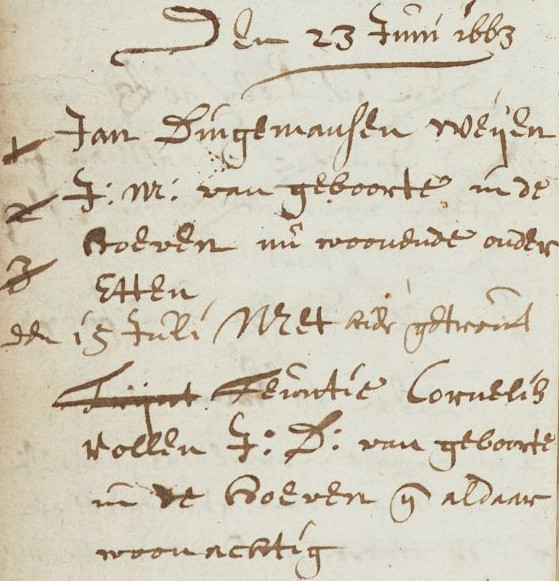 Den 23 Junii 1663
1 Jan Dingemansen Weijen
2 J: M: van geboorte in de
3 Hoeven nu woonende onder
Etten
den 15 Juli Met getrout
Trijnt Teuntie Cornelis
Rollen J: D: van geboorte
in de Hoeven en aldaar
woonachtig